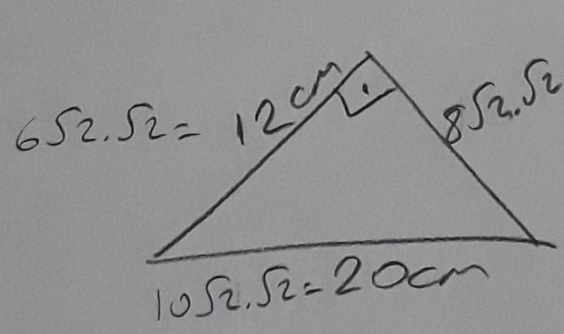 6√2.√2= 12cm
8√2.√2
10√2.√2=20cm